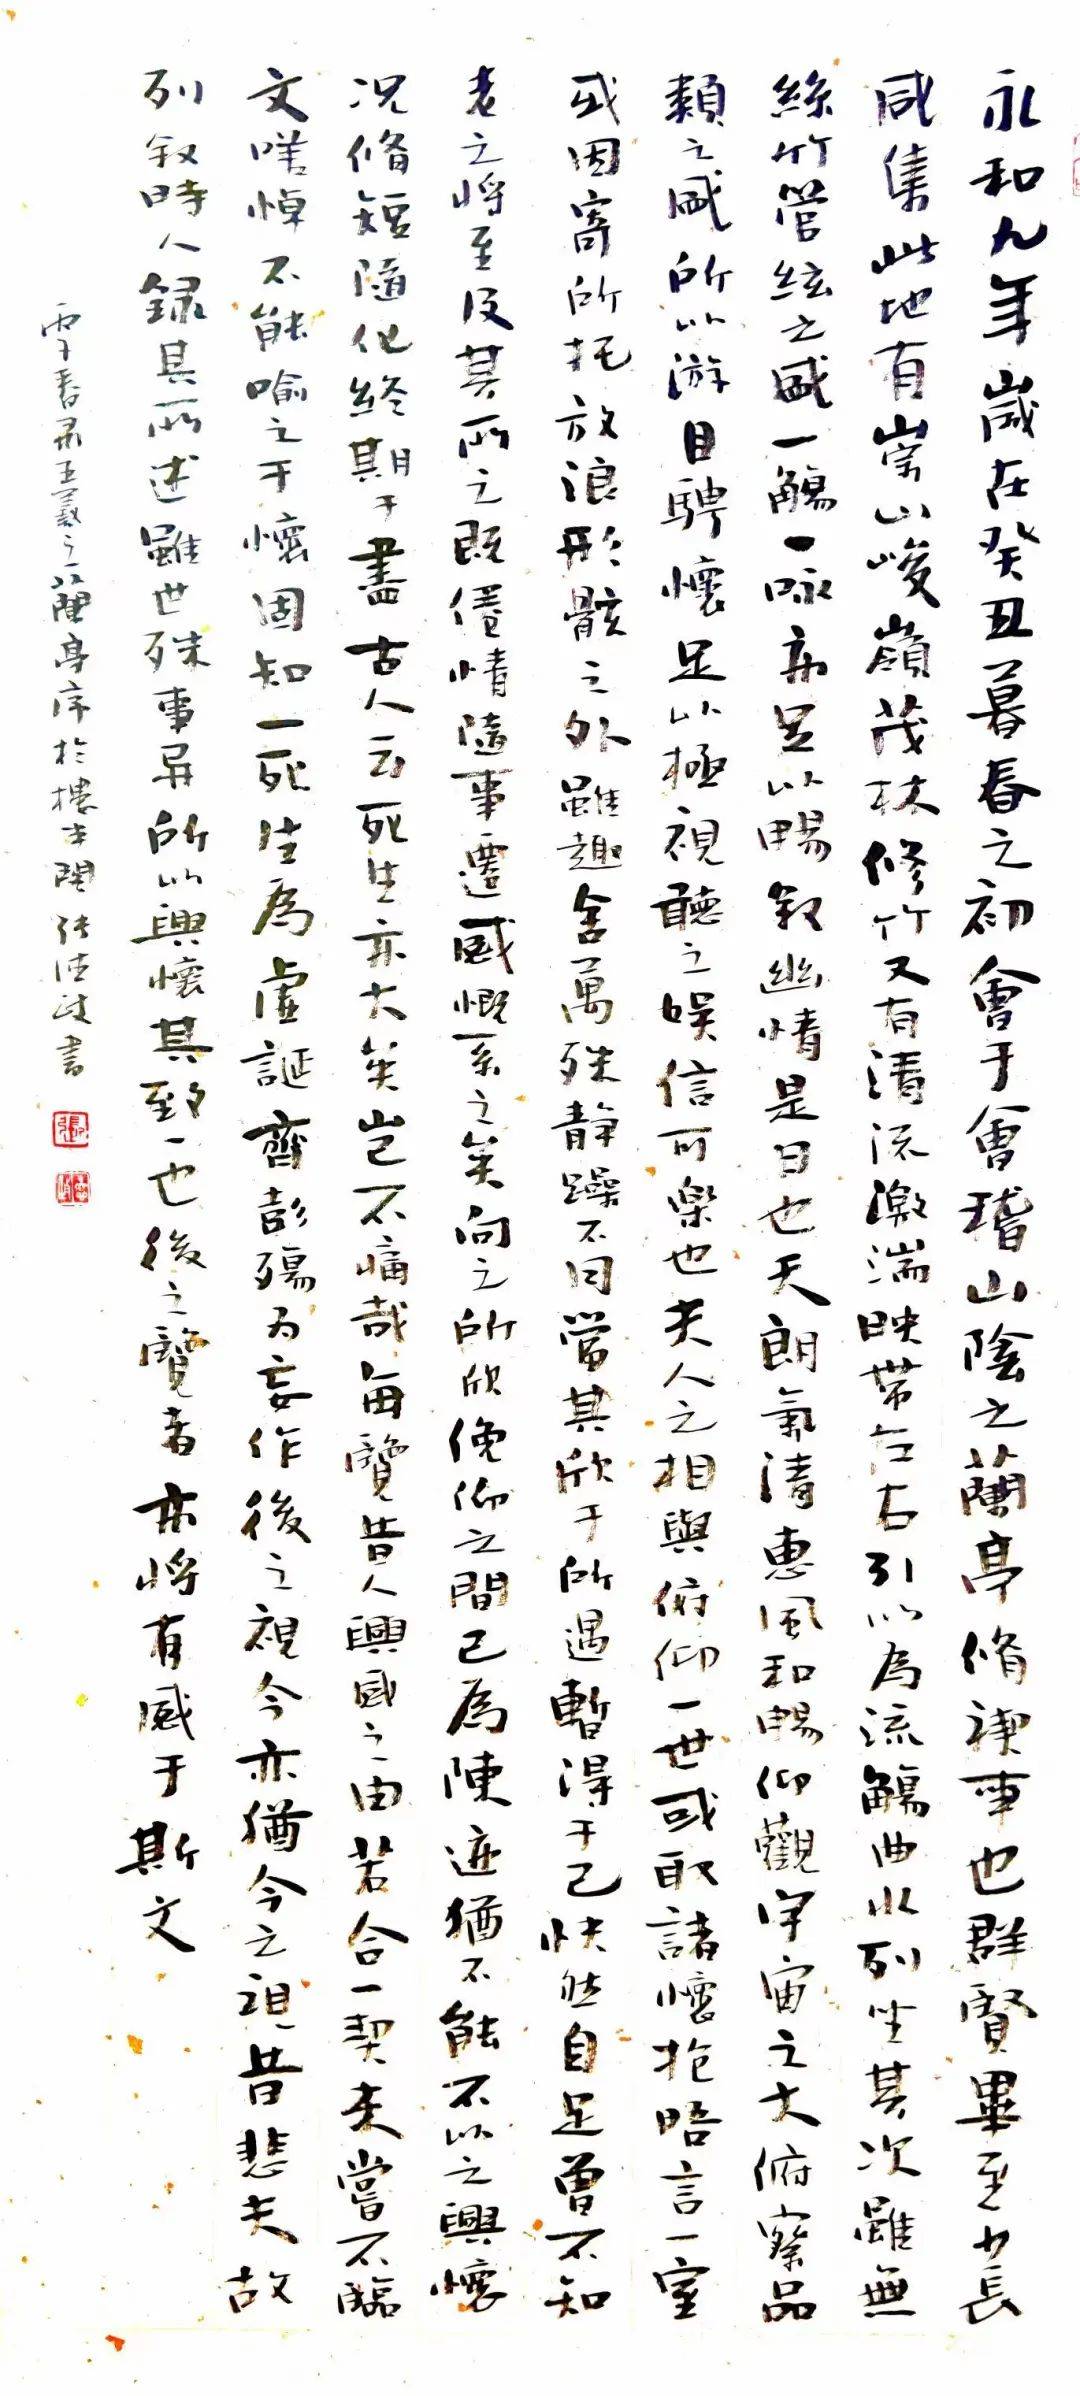 永和九年歲在癸丑暮春之初會于會稽山陰之蘭亭脩禊事也群賢畢至少長
咸集此地有崇山峻嶺茂林修竹又有清流激湍映帶左右引以為流觴曲水列坐其次雖無
絲竹管絃之盛一觴一咏亦足以暢叙幽情是日也天朗氣清惠風和暢仰觀宇宙之大俯察品
類之盛所以游目騁懷足以極視聽之娛信可楽也夫人之相與俯仰一世或取諸懷抱晤言一室
或因寄所托放浪形骸之外雖趣舍萬殊静躁不同當其欣于所遇暫得于己快然自足曾不知
老之將至及其所之既倦情隨事遷感慨系之矣向之所欣俛仰之間已為陳迹猶不能不以之興懷
况脩短隨化終期于盡古人云死生亦大矣豈不痛哉每覽昔人興感之由若合一契未嘗不臨
文嗟悼不能喻之于懷固知一死生為虛誕齊彭殤为妄作後之視今亦猶今之視昔悲夫故
列叙時人録其所述雖世殊事异所以興懷其致一也後之覽者亦將有感于斯文
春王羲之蘭亭序於樓張書